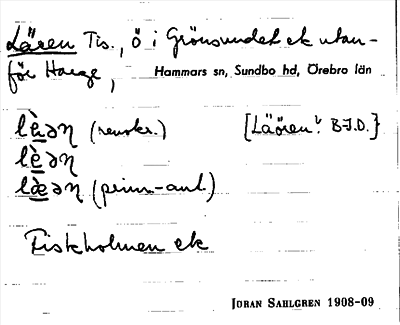 Lääen Tis., ö i Grönsundet ek utan-
för Harge,
Hammars sn, Sundbo hd, Örebro län
lèəη (renskr.) [Läören". B.J.D.]
lèəη
læ̀əη (prim.-ant.)
Fiskholmen ek
JÖRAN SAHLGREN 1908-09